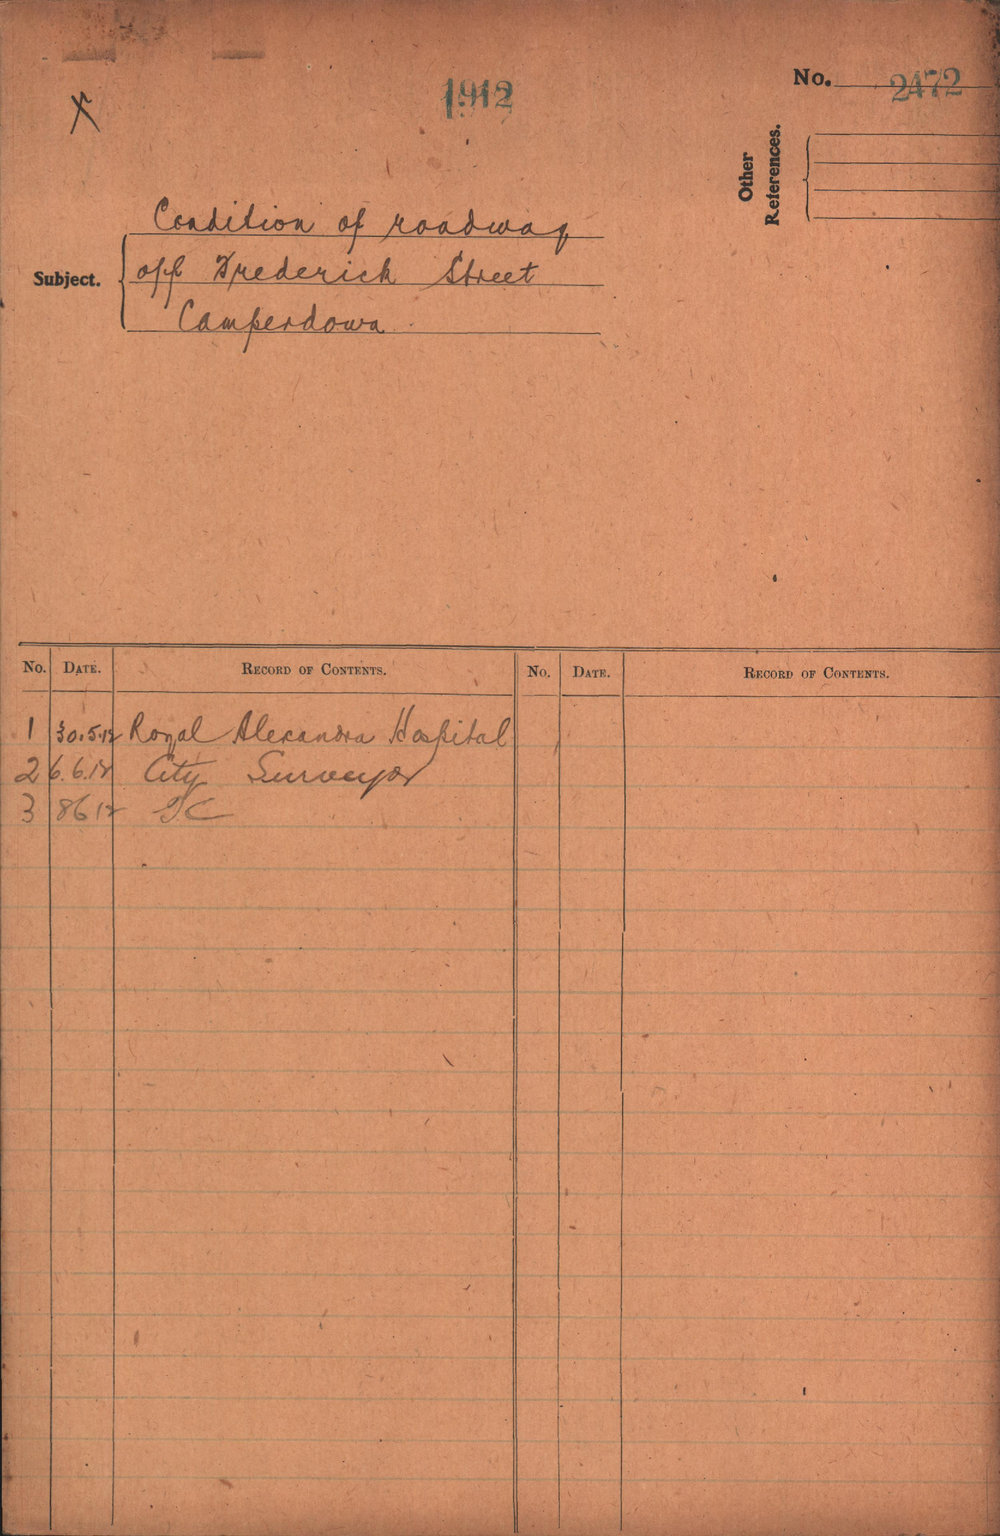 1912
No. 2472
Other References.
Subject.
Condition of roadway
off Frederick Street
Camperdown
No. DATE. RECORD OF CONTENTS. No. DATE. RECORD OF CONTENTS.
1 30.5.12 Royal Alexandra Hospital
2 6.6.12 City Surveyor
3 8 6 12